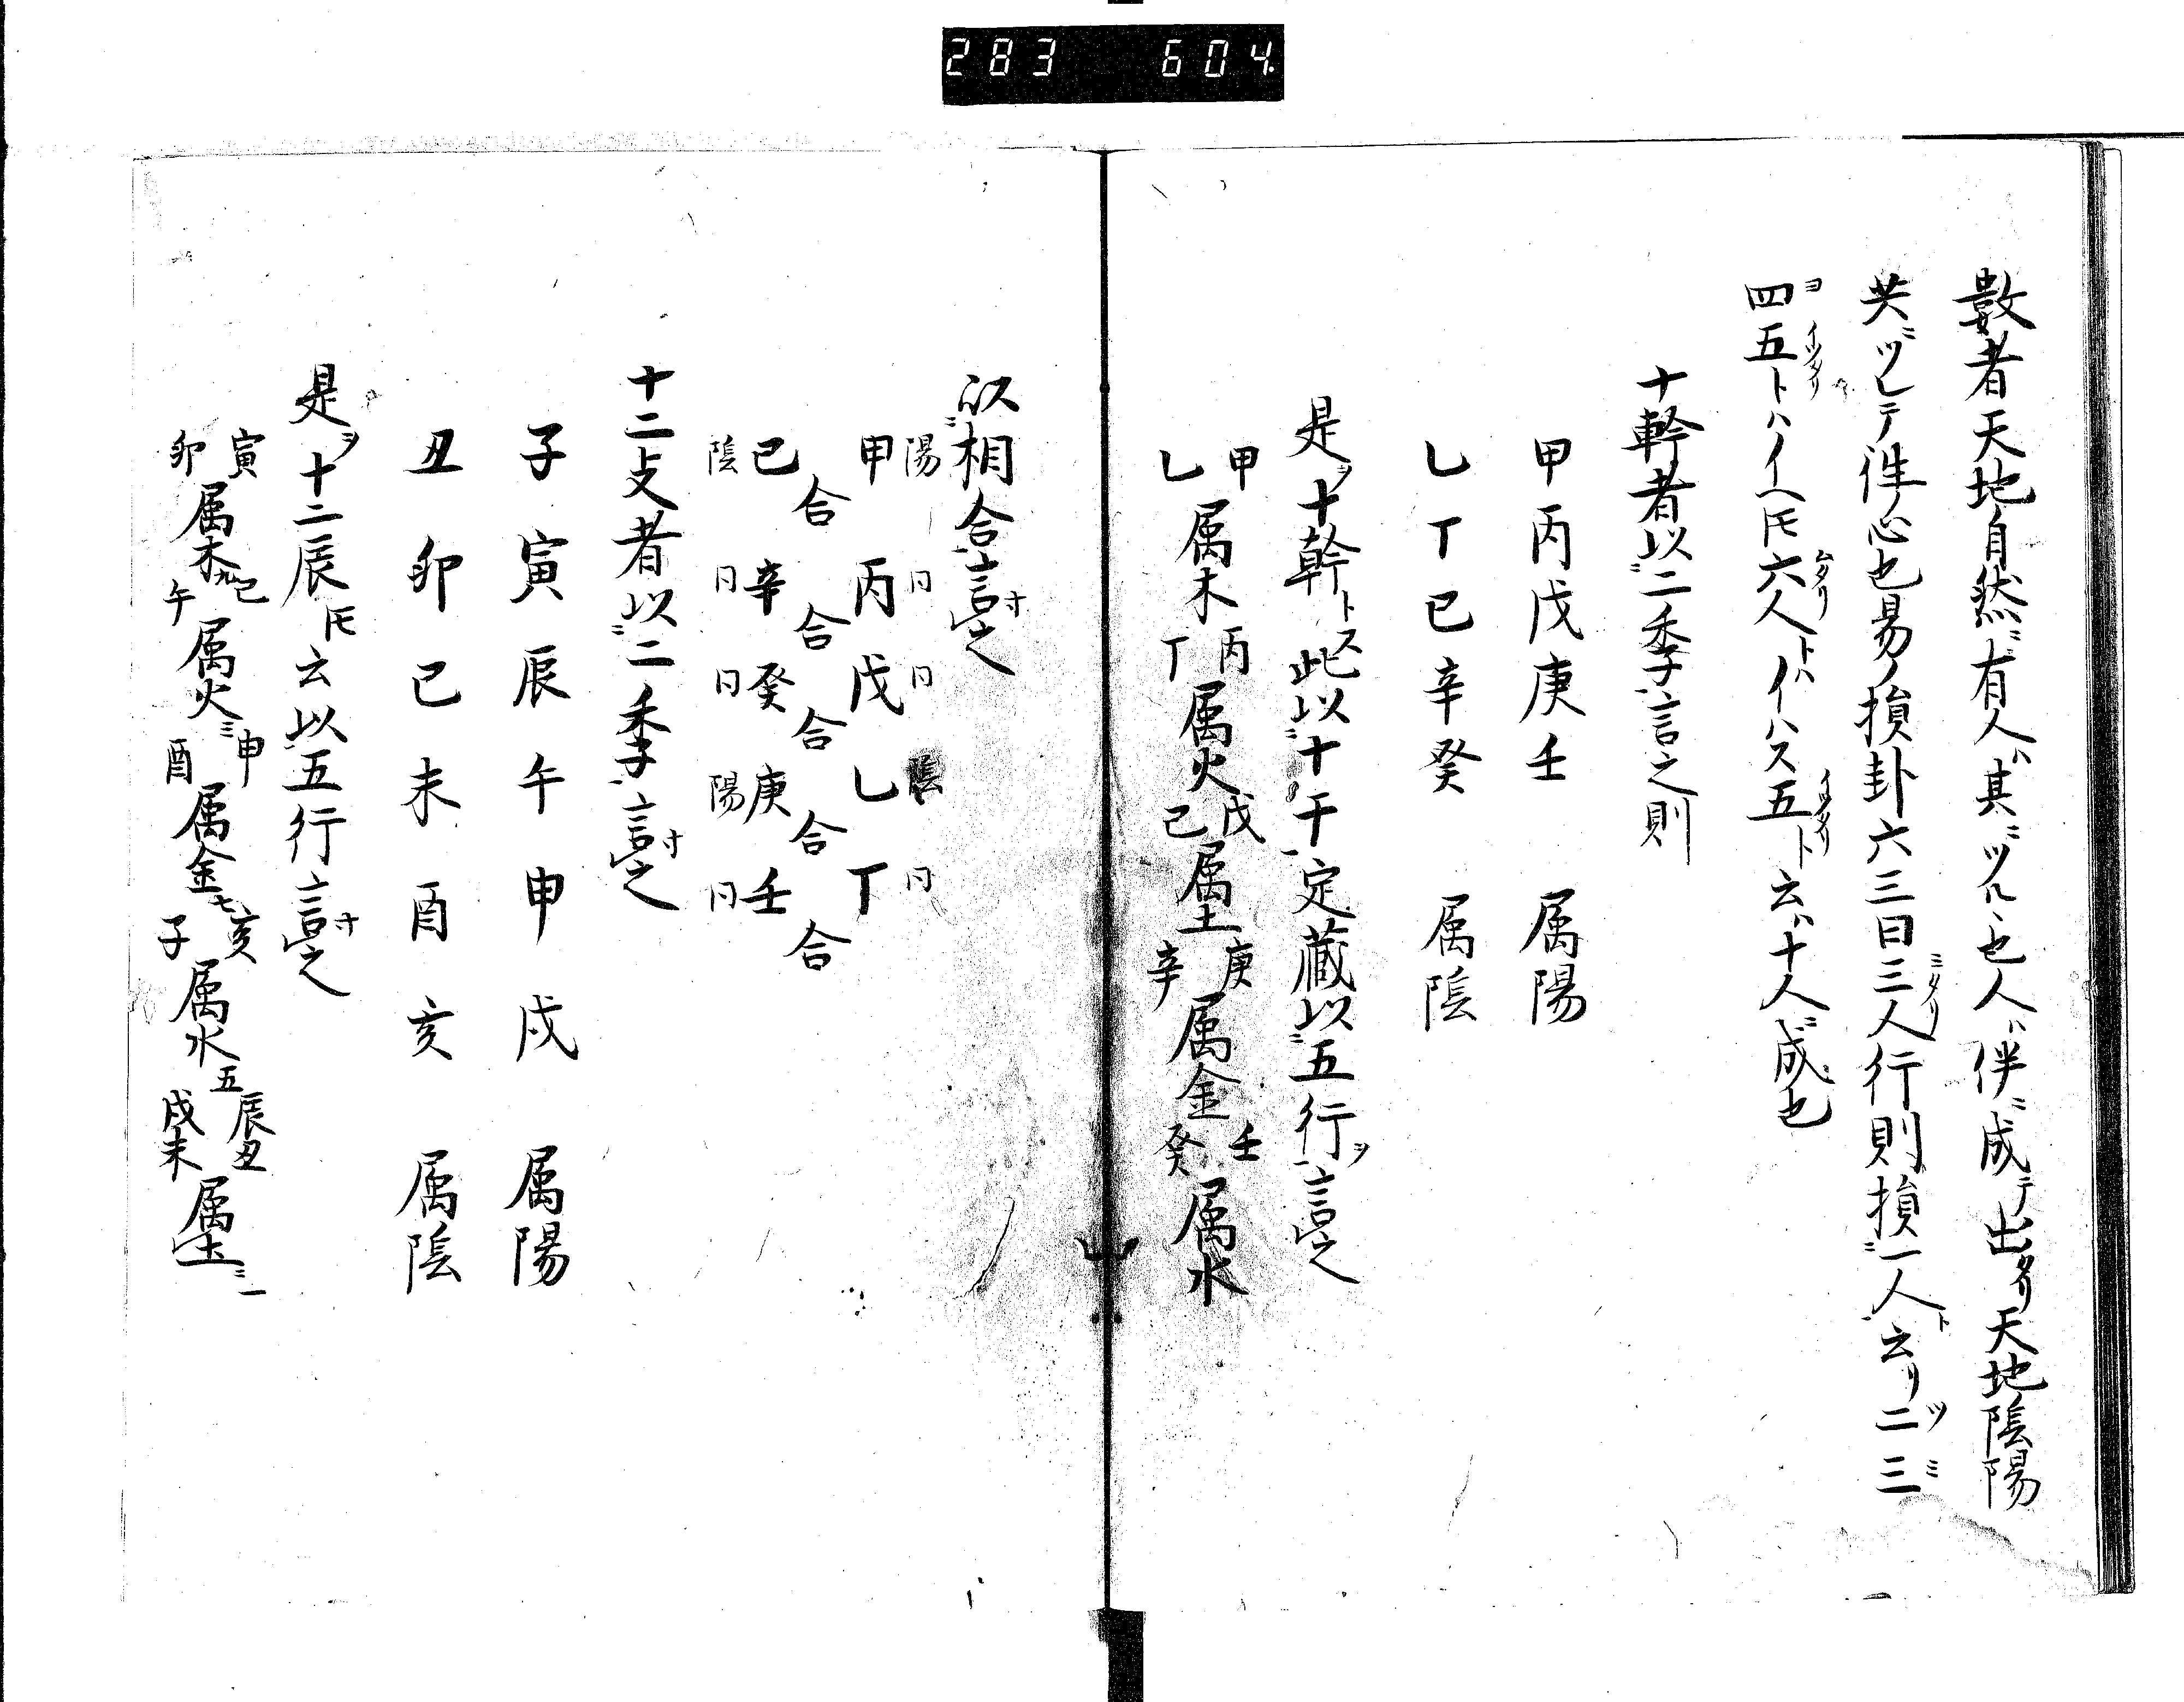 283 604
数者天地自然ニ有人ハ其ニツルヽ也人ハ伴ニ成テ出タリ天地陰陽
共ニツレテ伴心也易ノ損卦六三曰三人行則損一人ト云リ二三
四五トハイヘ𪜈六人トハイハス五ト云ハ十人ニ成也
十幹者以二季言之則
甲丙戊庚壬 属陽
乙丁己辛癸 属陰
是ヲ十幹トス此以十干定蔵以五行ヲ言之
甲乙属木丙丁属火戊己属土庚辛属金壬癸属水
以相合言之
陽 日 日 陰 日
甲 丙 戊 乙 丁
合 合 合 合 合
己 辛 癸 庚 壬
陰 日 日 陽 日
十二支者以二季言之
子寅辰午申戌 属陽
丑卯巳未酉亥 属陰
是ヲ十二辰𪜈云以五行言之
寅卯属木九巳午属火三申酉属金七亥子属水五辰丑戌未属土一